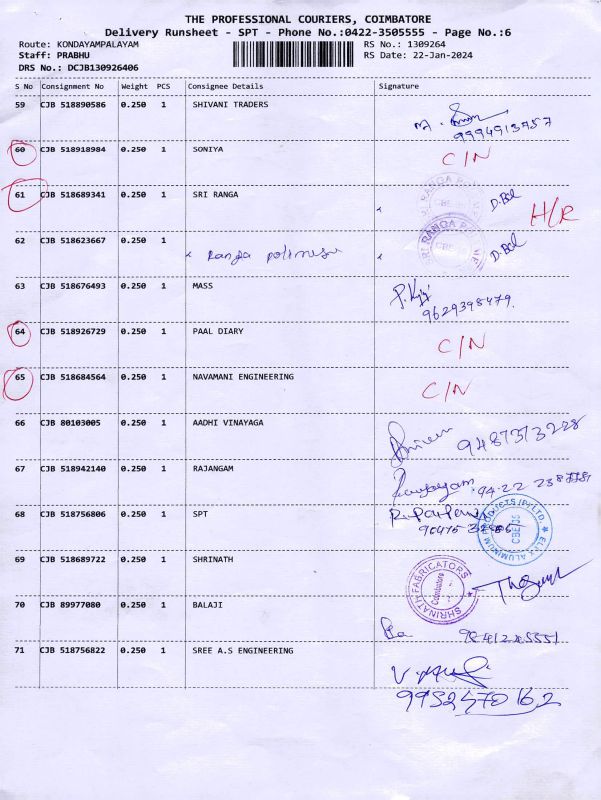 THE PROFESSIONAL COURIERS, COIMBATORE
Delivery Runsheet - SPT - Phone No.:0422-3505555 - Page No.:6
Route: KONDAYAMPALAYAM RS No.: 1309264
Staff: PRABHU RS Date: 22-Jan-2024
DRS No.: DCJB130926406
S No Consignment No Weight PCS Consignee Details Signature
59 CJB 518890586 0.250 1 SHIVANI TRADERS
9994913757
60 CJB 518918984 0.250 1 SONIYA C/N
61 CJB 518689341 0.250 1 SRI RANGA D.Bal H/R
62 CJB 518623667 0.250 1 Ranga polimers D.Bal
63 CJB 518676493 0.250 1 MASS
9629398479
64 CJB 518926729 0.250 1 PAAL DIARY C/N
65 CJB 518684564 0.250 1 NAVAMANI ENGINEERING C/N
66 CJB 80103005 0.250 1 AADHI VINAYAGA 9487373228
67 CJB 518942140 0.250 1 RAJANGAM
68 CJB 518756806 0.250 1 SPT
69 CJB 518689722 0.250 1 SHRINATH SHRINATH FABRICATORS Coimbatore
70 CJB 89977080 0.250 1 BALAJI
71 CJB 518756822 0.250 1 SREE A.S ENGINEERING
9952470162